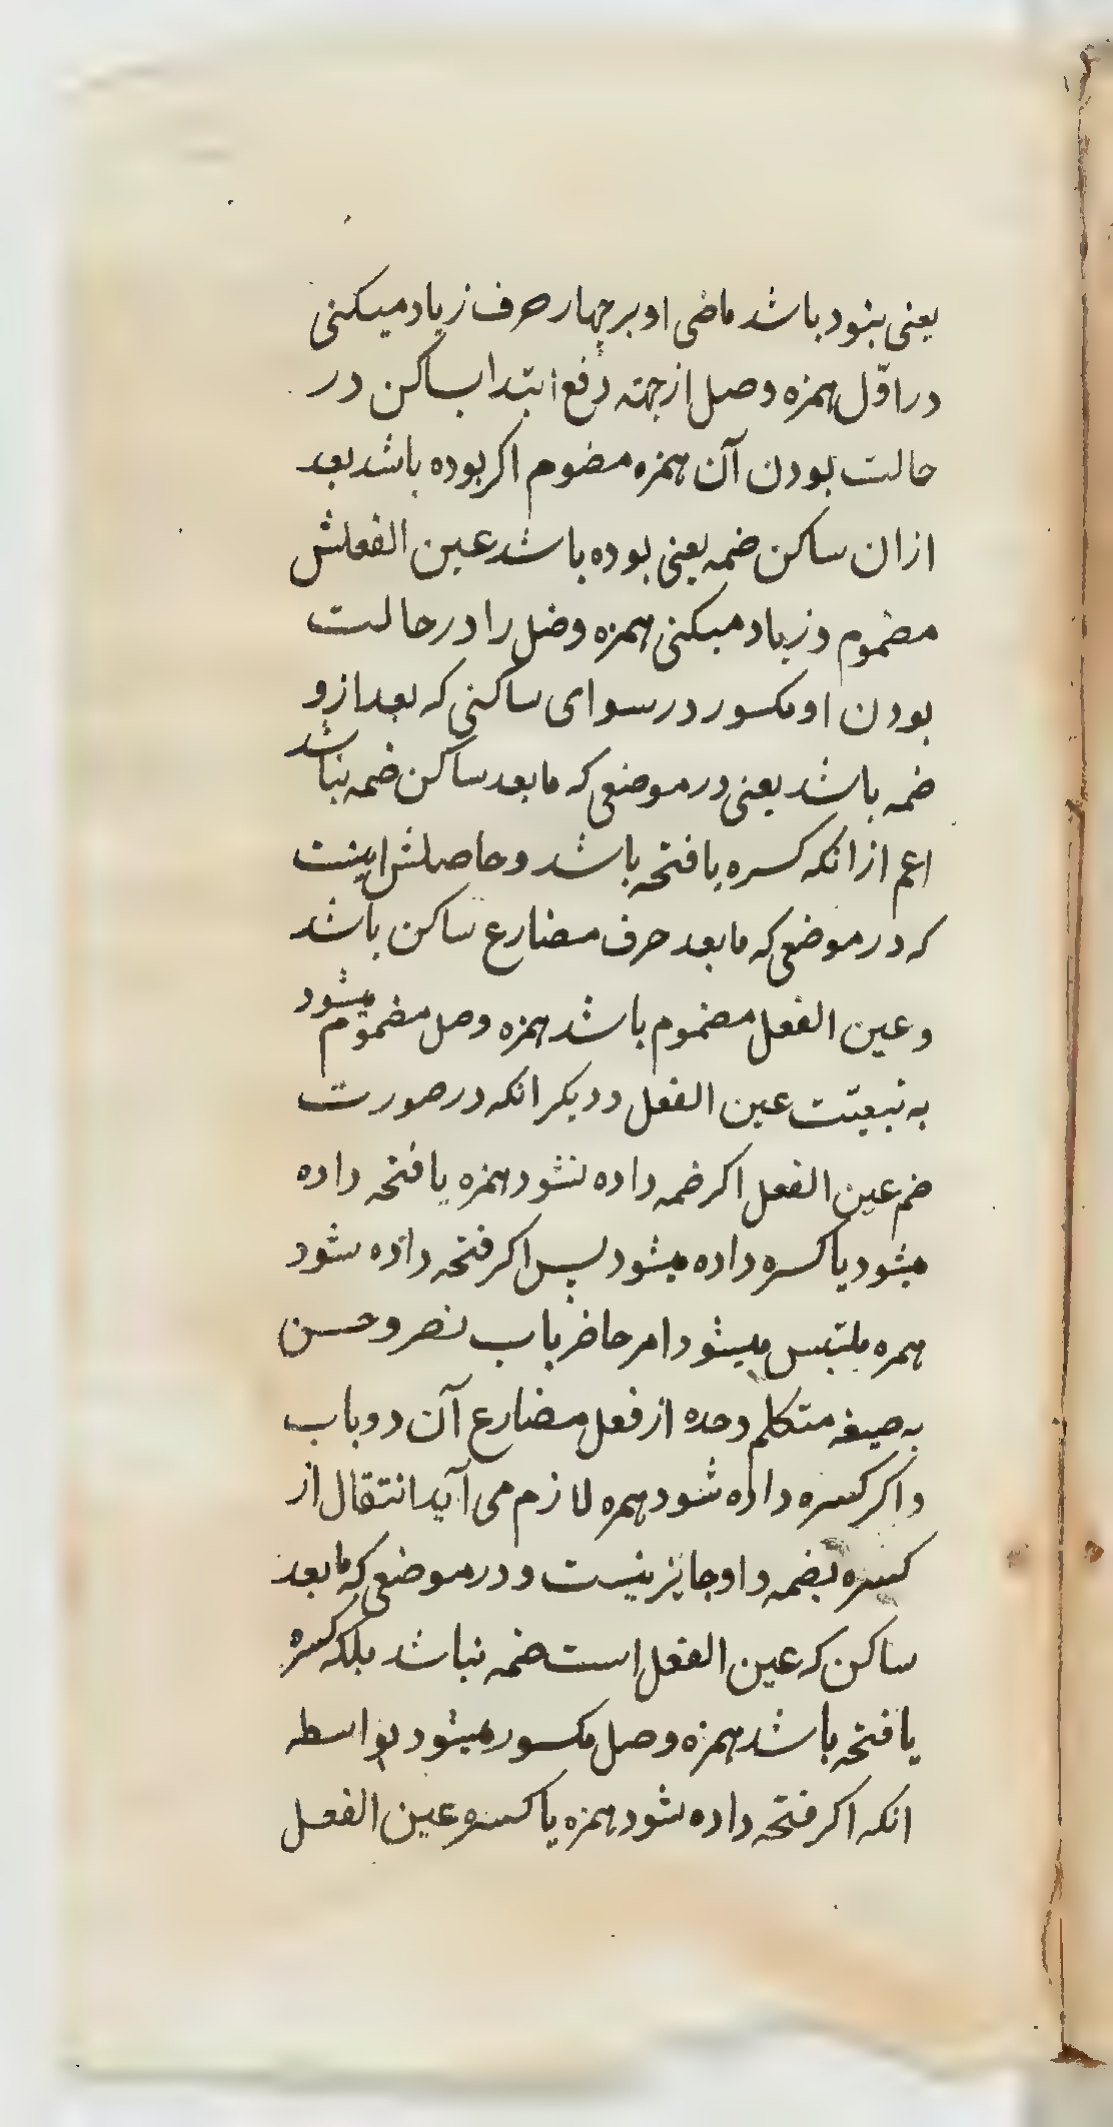 یعنی بنود باشد ماضی او بر چهار حرف زیاد میکنی
در اوّل همزه وصل از جهته رفع ابتدا بساکن در
حالت بودن آن همزه مضوم اکر بوده باشد بعد
ازان ساکن ضمه یعنی بوده باشد عین الفعلش
مضموم و زیاد میکنی همزه وصل را در حالت
بودن او مکسور در سوای ساکنی که بعد ازو
ضمه باشد یعنی در موضعی که مابعد ساکن ضمه نباشد
اعم از انکه کسره یا فتحه باشد و حاصلش اینست
که در موضعی که مابعد حرف مضارع ساکن باشد
و عین الفعل مضموم باشد همزه وصل مضموم میشود
به تبعیّت عین الفعل و دیکر انکه در صورت
ضم عین الفعل اکر ضمه داده نشود همزه یا فتحه داده
میشود یا کسره داده میشود پس اکر فتحه داده شود
همره ملتبس میشود امر حاضر باب نصر و حسن
به صیغه متکلم وحده از فعل مضارع آن دو باب
و اکر کسره داده شود همره لازم می آید انتقال از
کسره بضمه و او جایز نیست و در موضعی که مابعد
ساکن که عین الفعل است ضمه نباشد بلکه کسره
یا فتحه باشد همزه وصل مکسور میشود بواسطه
انکه اکر فتحه داده شود همزه یا کسره عین الفعل